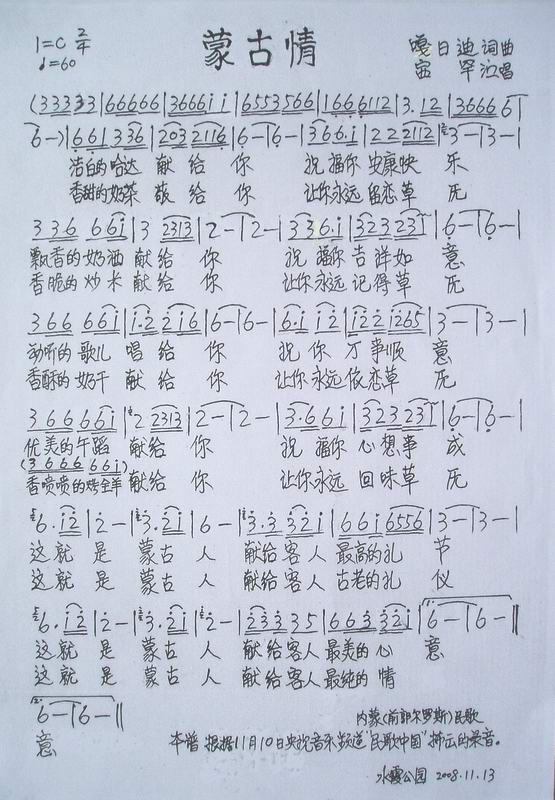 1=C 2/4 蒙古情 嘎日迪 词曲
♩=60 宝罕 演唱
(33333|66666|3666ii|6553566|1666112|3.12|36666|
6-)|661336|2032116|6-|6-|366.i|222112|3-|3-|
洁白的哈达 献 给 你 祝福你 安康快 乐
香甜的奶茶 献 给 你 让你永远 留恋草 原
336 66i|3 2313|2-|2-|336.i|323231|6-|6-|
飘香的奶酒 献给 你 祝福你 吉祥如 意
香脆的炒米 献给 你 让你永远 记得草 原
366 66i|i.2 2i6|6-|6-|6.i i2|i22 i265|3-|3-|
动听的歌儿 唱给 你 祝你 万事顺 意
香酥的奶干 献给 你 让你永远依恋草 原
366 66i|2 2313|2-|2-|3.66i|323231|6-|6-|
优美的午蹈 献给 你 祝福你 心想事 成
(3666 66i)
香喷喷的烤全羊 献给 你 让你永远 回味草 原
6.i2|2-|3.2i|6-|3.3 32i|66i 6556|3-|3-|
这就 是 蒙古 人 献给客人 最高的礼 节
这就 是 蒙古 人 献给客人 古老的礼 仪
6.i2|2-|3.2i|2-|23335|66332i|6-|6-‖
这就 是 蒙古 人 献给客人 最美的心 意
这就 是 蒙古 人 献给客人 最纯的 情
6-|6-‖
意 内蒙(前郭尔罗斯)民歌
本谱 根据11月10日央视音乐频道"民歌中国"播出的录音。
水霞公园 2008.11.13